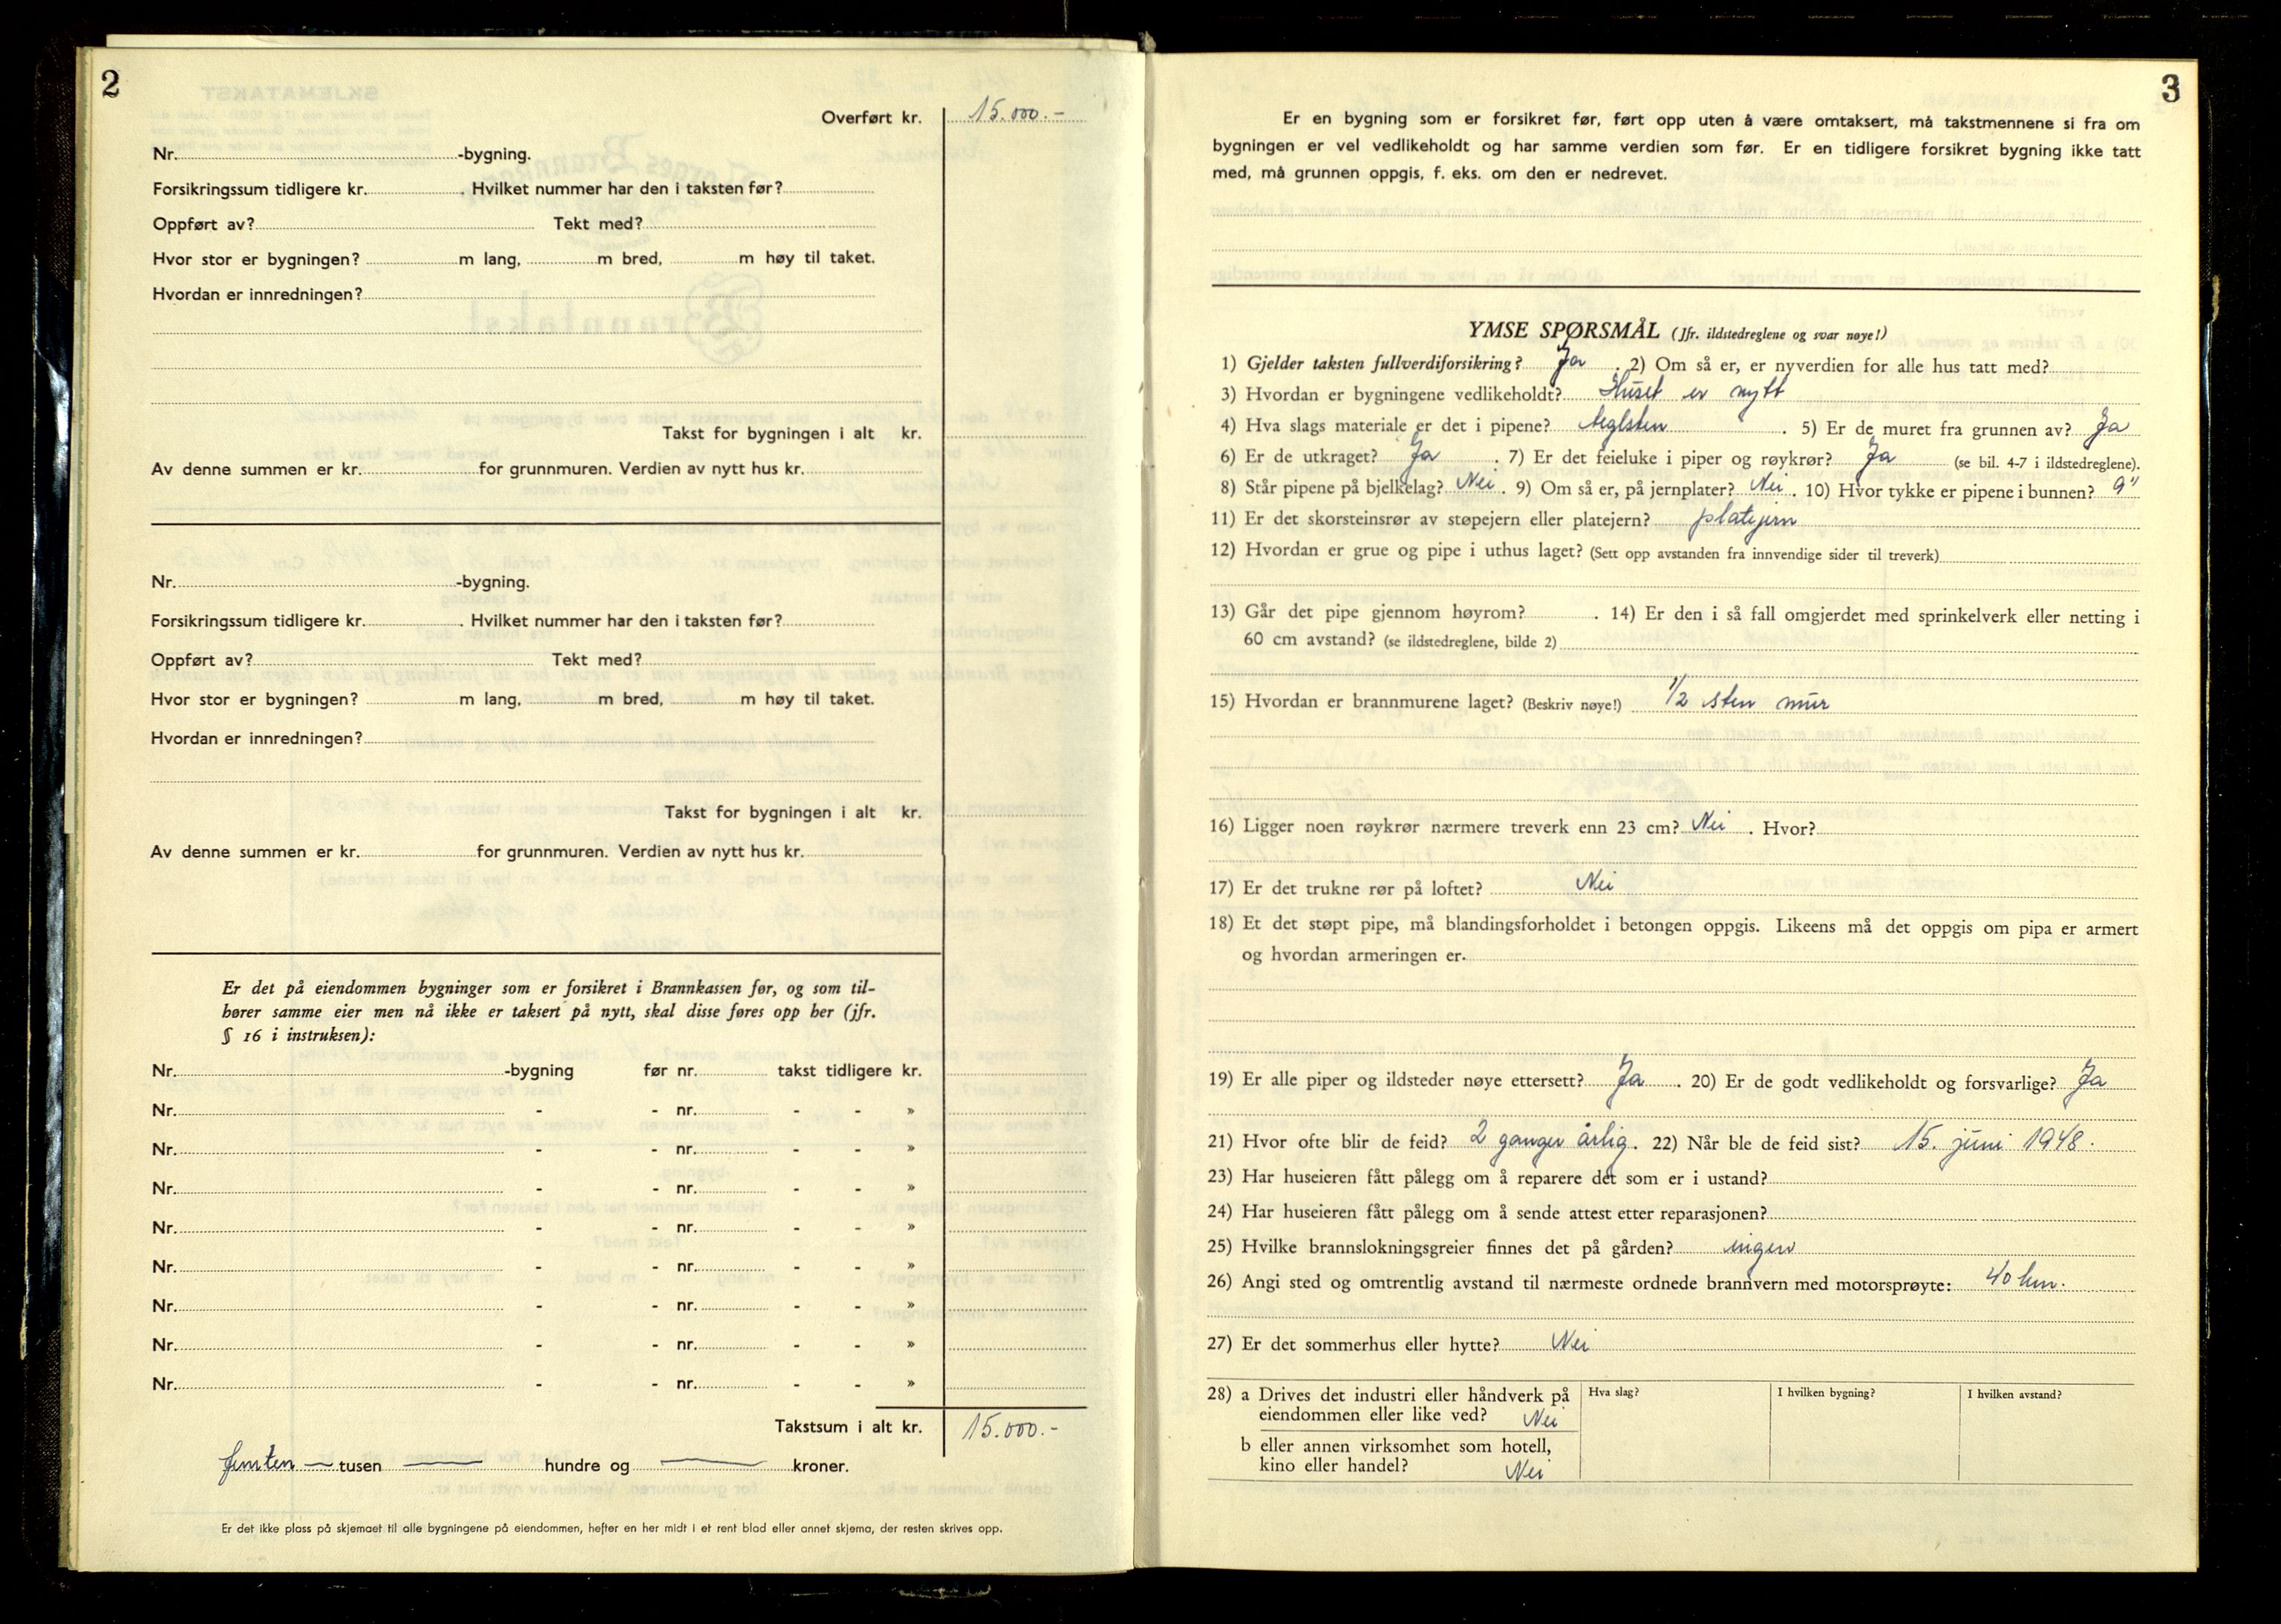 2
Overført kr. 15.000.-
Nr. -bygning.
Forsikringssum tidligere kr. . Hvilket nummer har den i taksten før?
Oppført av? Tekt med?
Hvor stor er bygningen? m lang, m bred, m høy til taket.
Hvordan er innredningen?
Takst for bygningen i alt kr.
Av denne summen er kr. for grunnmuren. Verdien av nytt hus kr.
Nr. -bygning.
Forsikringssum tidligere kr. . Hvilket nummer har den i taksten før?
Oppført av? Tekt med?
Hvor stor er bygningen? m lang, m bred, m høy til taket.
Hvordan er innredningen?
Takst for bygningen i alt kr.
Av denne summen er kr. for grunnmuren. Verdien av nytt hus kr.
Er det på eiendommen bygninger som er forsikret i Brannkassen før, og som til-
hører samme eier men nå ikke er taksert på nytt, skal disse føres opp her (jfr.
§ 16 i instruksen):
Nr. -bygning før nr. takst tidligere kr.
Nr. - - nr. - - »
Nr. - - nr. - - »
Nr. - - nr. - - »
Nr. - - nr. - - »
Nr. - - nr. - - »
Nr. - - nr. - - »
Nr. - - nr. - - »
Nr. - - nr. - - »
Takstsum i alt kr. 15.000.-
femten — tusen — hundre og — kroner.
Er det ikke plass på skjemaet til alle bygningene på eiendommen, hefter en her midt i et rent blad eller annet skjema, der resten skrives opp.
3
Er en bygning som er forsikret før, ført opp uten å være omtaksert, må takstmennene si fra om
bygningen er vel vedlikeholdt og har samme verdien som før. Er en tidligere forsikret bygning ikke tatt
med, må grunnen oppgis, f. eks. om den er nedrevet.
YMSE SPØRSMÅL (Jfr. ildstedreglene og svar nøye!)
1) Gjelder taksten fullverdiforsikring? Ja . 2) Om så er, er nyverdien for alle hus tatt med?
3) Hvordan er bygningene vedlikeholdt? Huset er nytt
4) Hva slags materiale er det i pipene? teglsten . 5) Er de muret fra grunnen av? Ja
6) Er de utkraget? Ja . 7) Er det feieluke i piper og røykrør? Ja (se bil. 4-7 i ildstedreglene).
8) Står pipene på bjelkelag? Nei . 9) Om så er, på jernplater? Nei . 10) Hvor tykke er pipene i bunnen? 9"
11) Er det skorsteinsrør av støpejern eller platejern? platejern
12) Hvordan er grue og pipe i uthus laget? (Sett opp avstanden fra innvendige sider til treverk)
13) Går det pipe gjennom høyrom? . 14) Er den i så fall omgjerdet med sprinkelverk eller netting i
60 cm avstand? (se ildstedreglene, bilde 2)
15) Hvordan er brannmurene laget? (Beskriv nøye!) 1/2 sten mur
16) Ligger noen røykrør nærmere treverk enn 23 cm? Nei . Hvor?
17) Er det trukne rør på loftet? Nei
18) Et det støpt pipe, må blandingsforholdet i betongen oppgis. Likeens må det oppgis om pipa er armert
og hvordan armeringen er.
19) Er alle piper og ildsteder nøye ettersett? Ja . 20) Er de godt vedlikeholdt og forsvarlige? Ja
21) Hvor ofte blir de feid? 2 ganger årlig. 22) Når ble de feid sist? 15. juni 1948.
23) Har huseieren fått pålegg om å reparere det som er i ustand?
24) Har huseieren fått pålegg om å sende attest etter reparasjonen?
25) Hvilke brannslokningsgreier finnes det på gården? ingen
26) Angi sted og omtrentlig avstand til nærmeste ordnede brannvern med motorsprøyte: 40 km.
27) Er det sommerhus eller hytte? Nei
28) a Drives det industri eller håndverk på Hva slag? I hvilken bygning? I hvilken avstand?
eiendommen eller like ved? Nei
b eller annen virksomhet som hotell,
kino eller handel? Nei